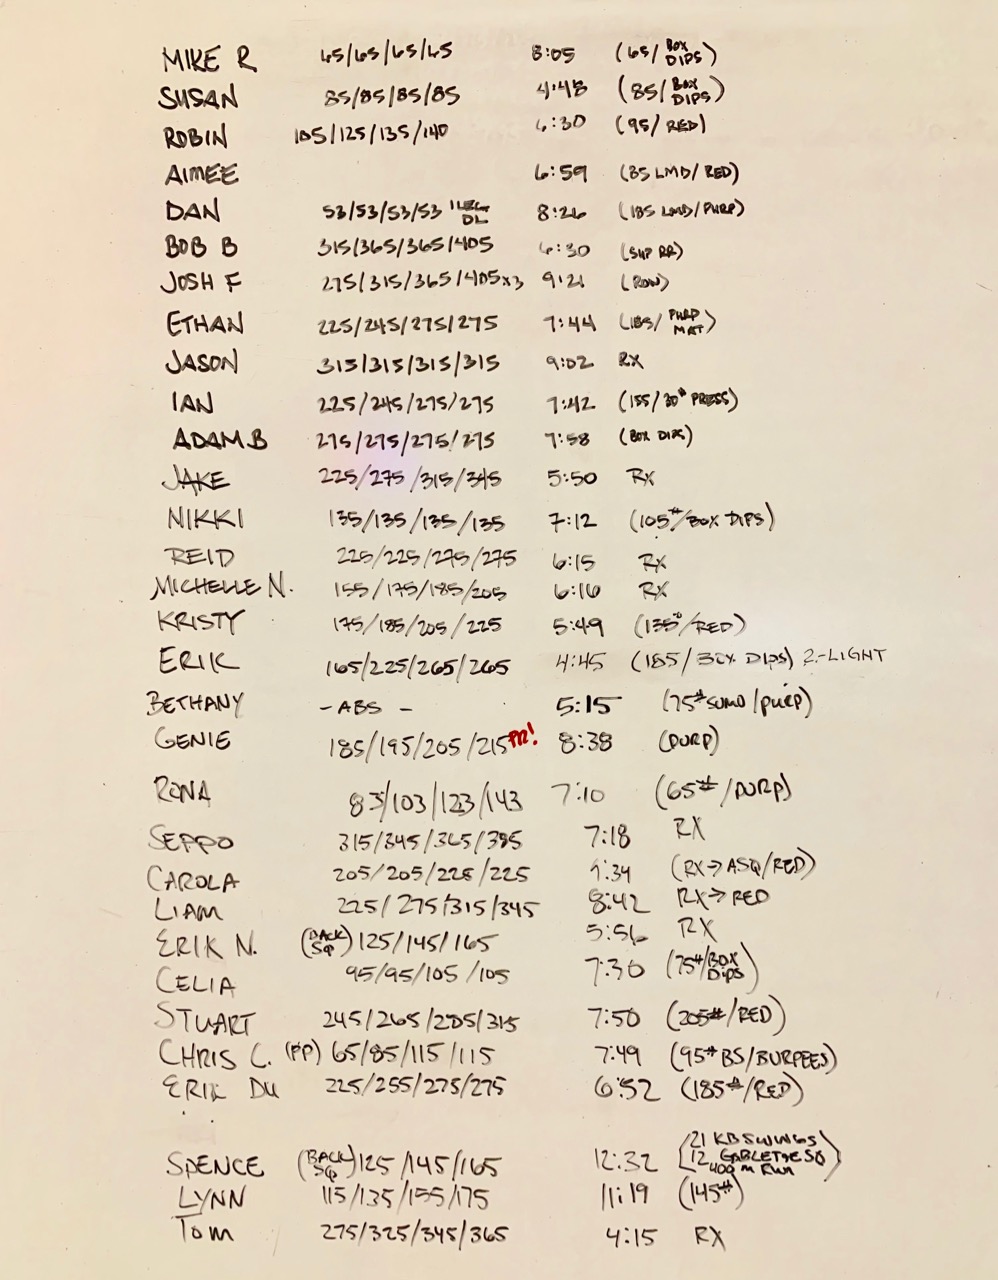 MIKE R 65/65/65/65 8:05 (65/BOX DIPS)
SUSAN 85/85/85/85 4:48 (85/BOX DIPS)
ROBIN 105/125/135/140 6:30 (95/RED)
AIMEE 6:59 (85 LMD/RED)
DAN 53/53/53/53 1 LEG DL 8:26 (185 LMD/PURP)
BOB B 315/365/365/405 6:30 (SUP RR)
JOSH F 275/315/365/405x3 9:21 (ROW)
ETHAN 225/245/275/275 7:44 (185/PURP MAT)
JASON 315/315/315/315 9:02 RX
IAN 225/245/275/275 7:42 (155/30# PRESS)
ADAM B 275/275/275/275 7:58 (BOX DIPS)
JAKE 225/275/315/345 5:50 RX
NIKKI 135/135/135/135 7:12 (105#/BOX DIPS)
REID 225/225/275/275 6:15 RX
MICHELLE N. 155/175/185/205 6:16 RX
KRISTY 175/185/205/225 5:49 (135#/RED)
ERIK 165/225/265/265 4:45 (185/BOX DIPS) 2-LIGHT
BETHANY - ABS - 5:15 (75# SUMO/PURP)
GENIE 185/195/205/215 PR! 8:38 (PURP)
RONA 83/103/123/143 7:10 (65#/PURP)
SEPPO 315/345/365/385 7:18 RX
CAROLA 205/205/225/225 :34 (RX→ASQ/RED)
LIAM 225/275/315/345 8:42 RX→RED
ERIK N. (BACK SQ) 125/145/165 5:56 RX
CELIA 95/95/105/105 7:30 (75#/BOX DIPS)
STUART 245/265/285/315 7:50 (205#/RED)
CHRIS C. (PP) 65/85/115/115 7:49 (95# BS/BURPEES)
ERIK DU 225/255/275/275 6:52 (185#/RED)
SPENCE (BACK SQ) 125/145/165 12:32 (21 KB SWINGS 12 GABLETE SQ 400 M RUN)
LYNN 115/135/155/175 11:19 (145#)
TOM 275/325/345/365 4:15 RX